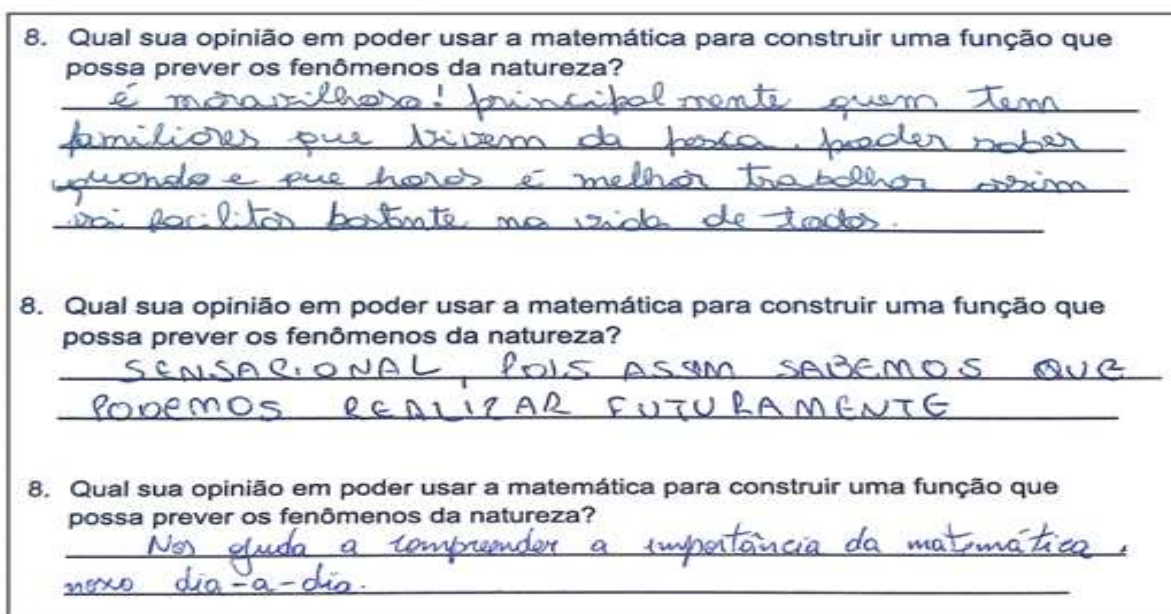 8. Qual sua opinião em poder usar a matemática para construir uma função que
possa prever os fenômenos da natureza?
é maravilhoso! principalmente quem tem
familiares que vivem da pesca. poder saber
quando e que horas é melhor trabalhar assim
vai facilitar bastante na vida de todos.
8. Qual sua opinião em poder usar a matemática para construir uma função que
possa prever os fenômenos da natureza?
SENSACIONAL, POIS ASSIM SABEMOS QUE
PODEMOS REALIZAR FUTURAMENTE
8. Qual sua opinião em poder usar a matemática para construir uma função que
possa prever os fenômenos da natureza?
Nos ajuda a compreender a importância da matemática,
nosso dia-a-dia.